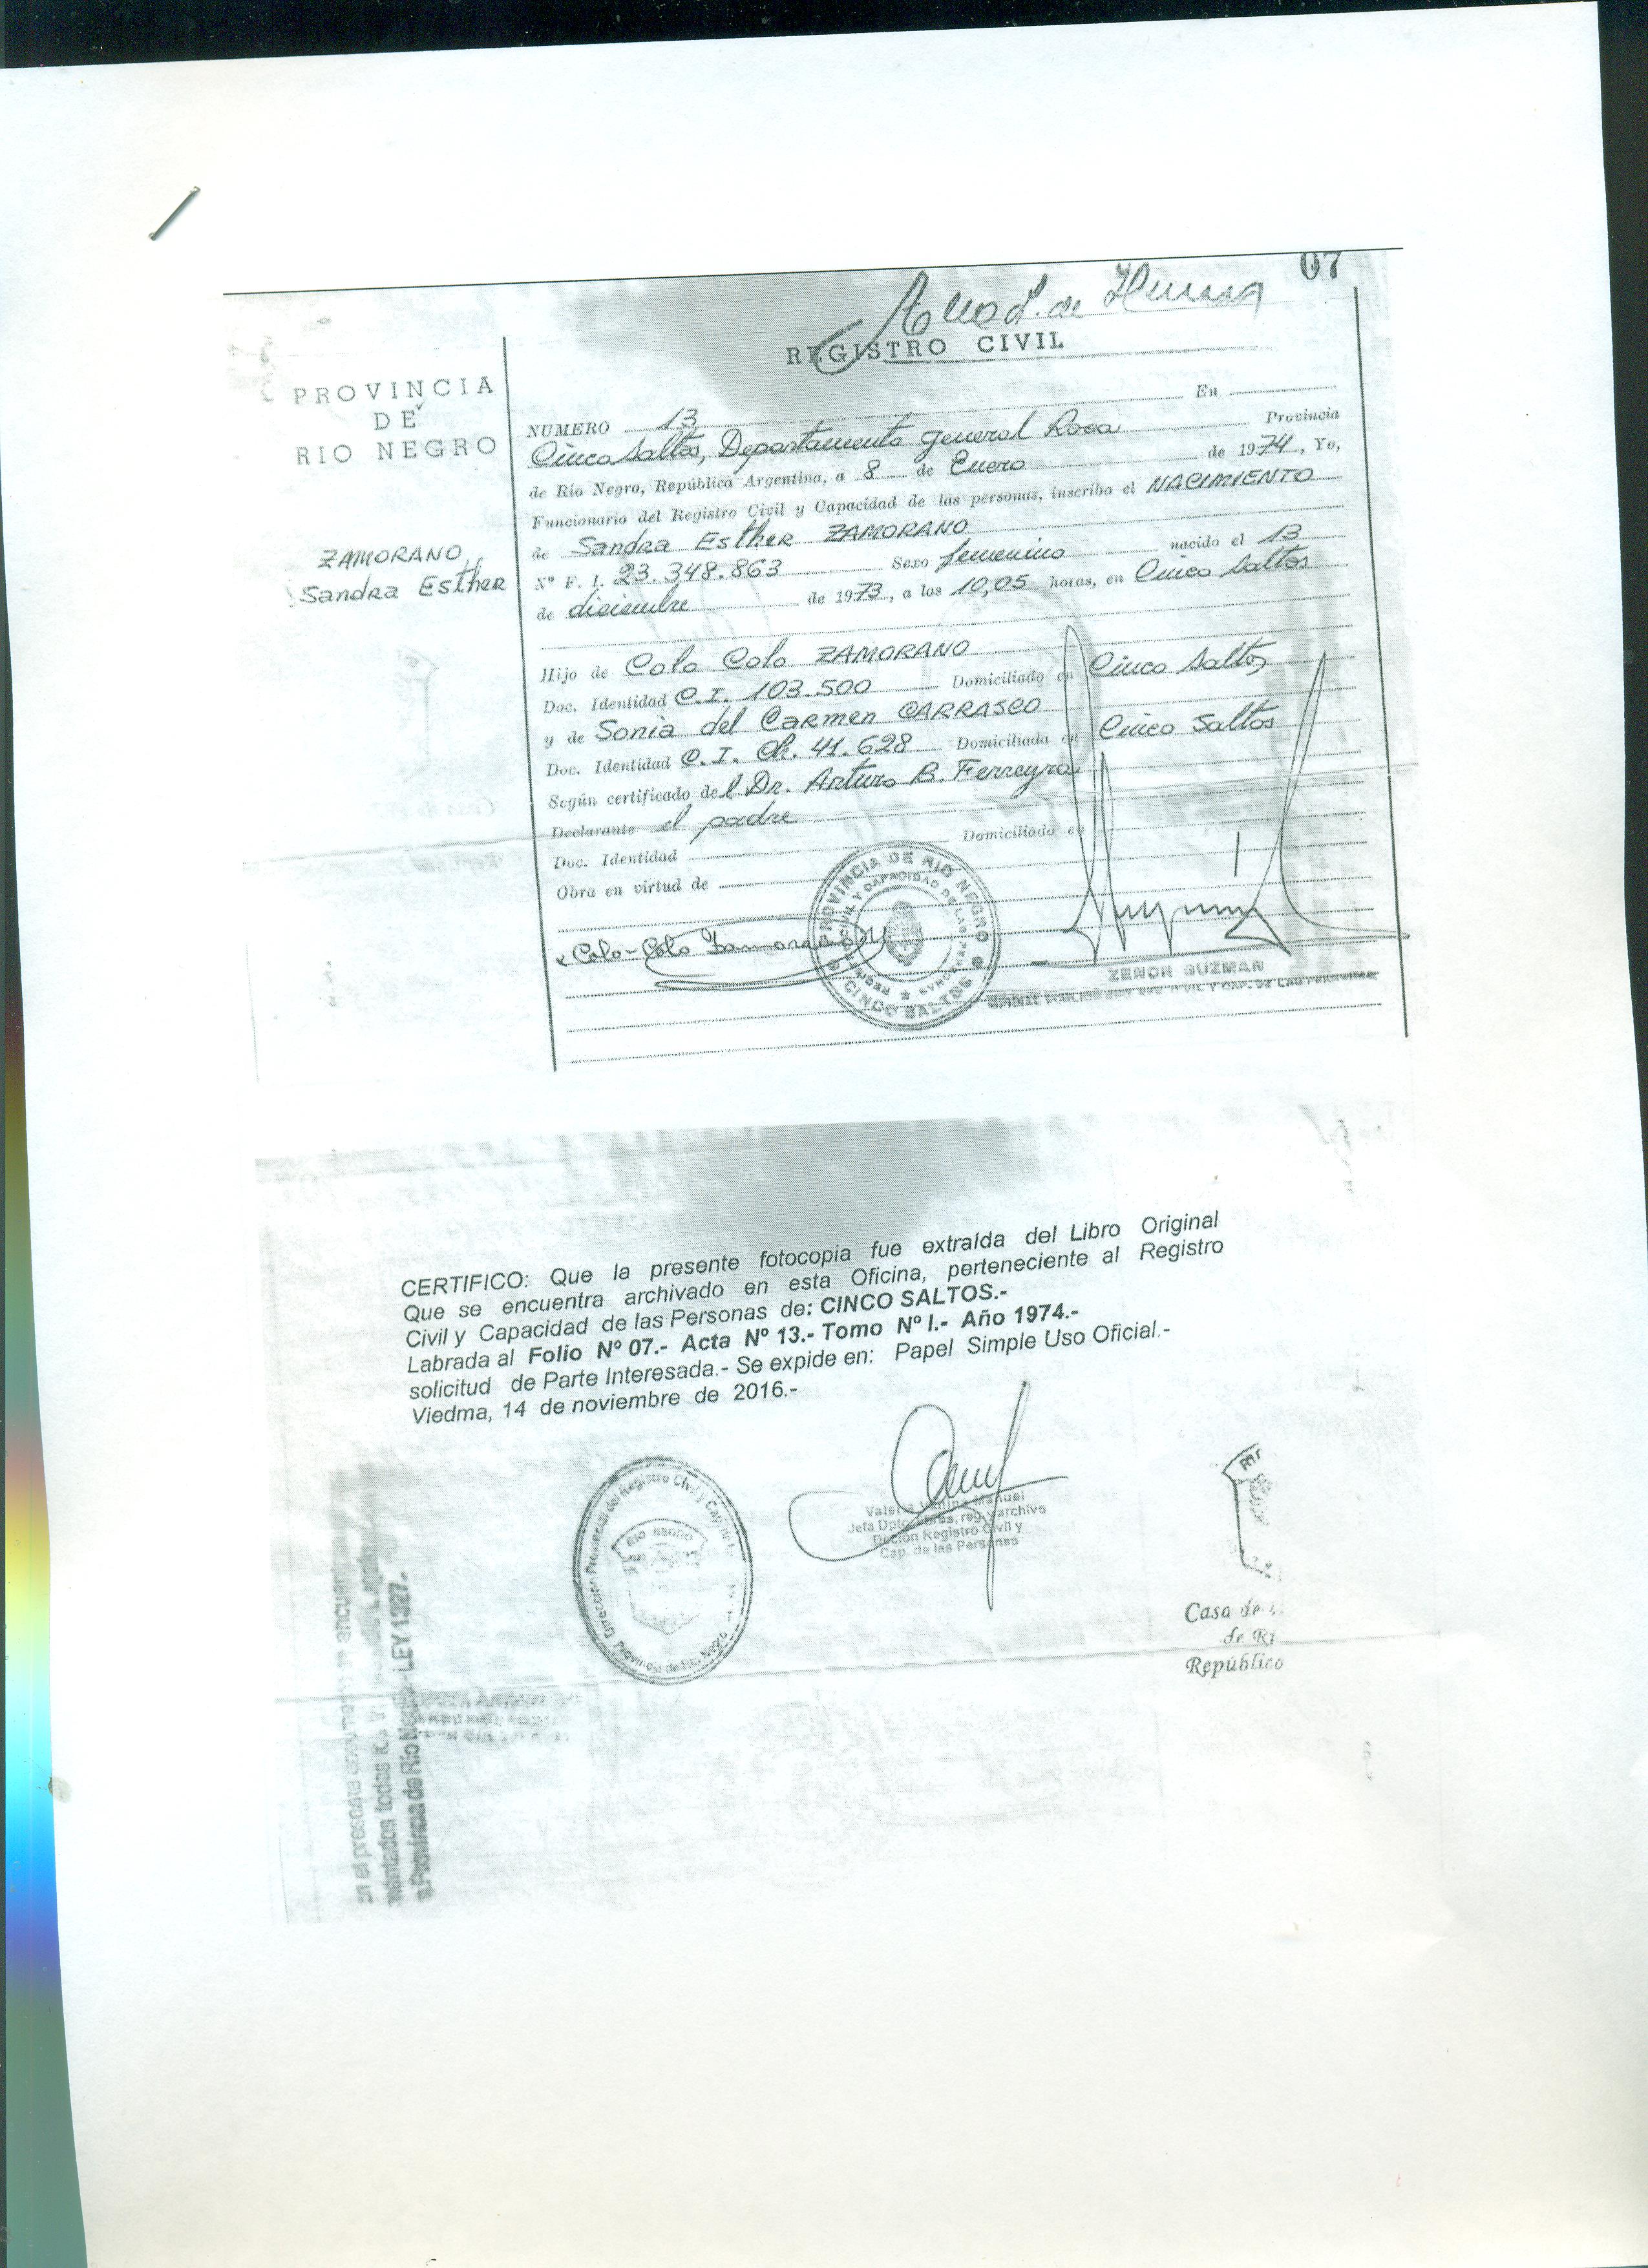 07
REGISTRO CIVIL
PROVINCIA
DE
RIO NEGRO
ZAMORANO,
Sandra Esther
NUMERO 13 En
Cinco Saltos, Departamento general Roca Provincia
de Río Negro, República Argentina, a 8 de Enero de 1974, Yo,
Funcionario del Registro Civil y Capacidad de las personas, inscribo el NACIMIENTO
de Sandra Esther ZAMORANO
Nº F. I. 23.348.863 Sexo femenino nacido el 13
de diciembre de 1973, a las 10,05 horas, en Cinco Saltos
Hijo de Colo Colo ZAMORANO
Doc. Identidad C.I. 103.500 Domiciliado en Cinco Saltos
y de Sonia del Carmen CARRASCO
Doc. Identidad C.I. Ch. 41.628 Domiciliada en Cinco Saltos
Según certificado del Dr. Arturo B. Ferreyra
Declarante el padre
Doc. Identidad Domiciliado en
Obra en virtud de
Colo-Colo Zamorano
PROVINCIA DE RIO NEGRO
CINCO SALTOS
ZENON GUZMAN
CERTIFICO: Que la presente fotocopia fue extraída del Libro Original
Que se encuentra archivado en esta Oficina, perteneciente al Registro
Civil y Capacidad de las Personas de: CINCO SALTOS.-
Labrada al Folio Nº 07.- Acta Nº 13.- Tomo Nº I.- Año 1974.-
solicitud de Parte Interesada.- Se expide en: Papel Simple Uso Oficial.-
Viedma, 14 de noviembre de 2016.-
Dirección Provincial del Registro Civil y
RIO NEGRO
Provincia de Río Negro
Manuel
Jefa Dpto. archivo
Registro Civil y
Cap. de las Personas
Casa de
de Rí
República
Provincia de Río Negro LEY 1327.-